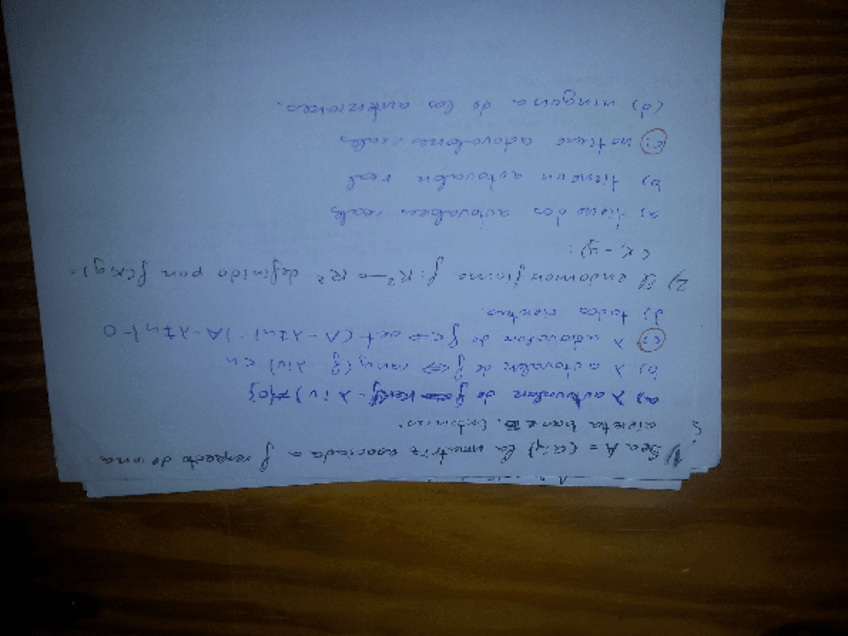 1) Sea A = (aij) la matriz asociada a f respecto de una
cierta base B. Entonces:
a) λ autovalor de f ⇔ Ker(f - λ iv) ≠ {0}
b) λ autovalor de f ⇔ rang (f - λiv) < n
c) λ autovalor de f ⇔ det (A - λIn) = |A - λIn| = 0
d) todas
2) El endomorfismo f: R² → R² definido por f(x,y) =
(x, -y):
a) tiene dos autovalores reales
b) tiene un autovalor real
c) no tiene autovalores reales
(d) ninguna de las anteriores.